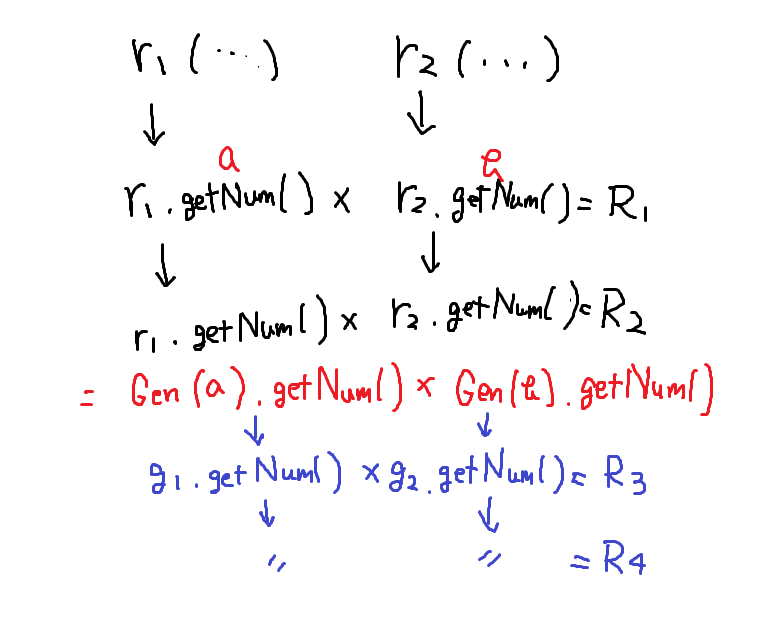 r₁ (...) r₂ (...)
↓ ↓
a
r₁.getNum() × r₂.getNum() = R₁
↓ ↓
r₁.getNum() × r₂.getNum() = R₂
= Gen(a).getNum() ×
.getNum()
↓ ↓
g₁.getNum() × g₂.getNum() = R₃
↓ ↓
〃 〃 = R₄